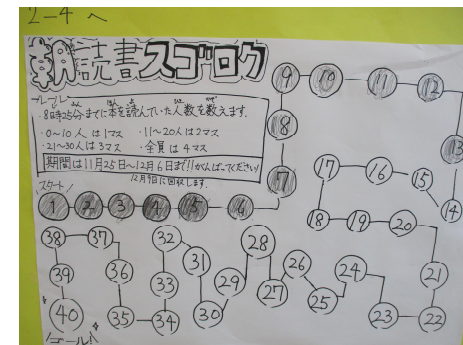 2-4へ
朝読書スゴロク
ルール
・8時25分までに本を読んでいた人数を数えます。
・0~10人は1マス ・11~20人は2マス
・21~30人は3マス ・全員は4マス
期間は11月25日~12月6日まで!!がんばってください!
12月9日に回収します。
スタート!
1 2 3 4 5 6
7
8
9 10 11 12
13
14
15
16
17
18 19 20
21
22
23
24
25
26
27
28
29
30
31
32
33
34
35
36
37
38
39
40
ゴール!